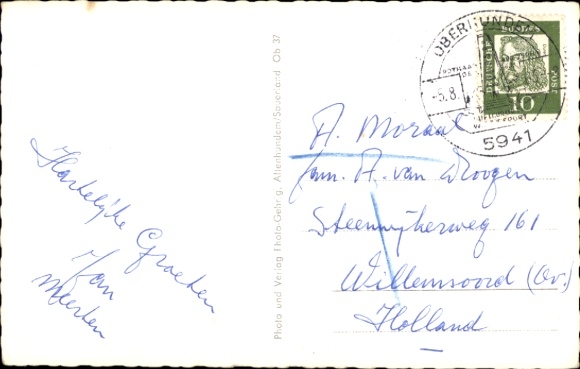 Hartelijke Groeten
Jan
Meerten
Photo und Verlag Photo-Gehrig, Altenhundem/Sauerland Ob 37
OBERHUNDEM
-5.8.
5941
DEUTSCHE
BUNDES
POST
10
A. Moraal
fam. A. van Droogen
Steenwijkerweg 161
Willemsoord (Ov.)
Holland